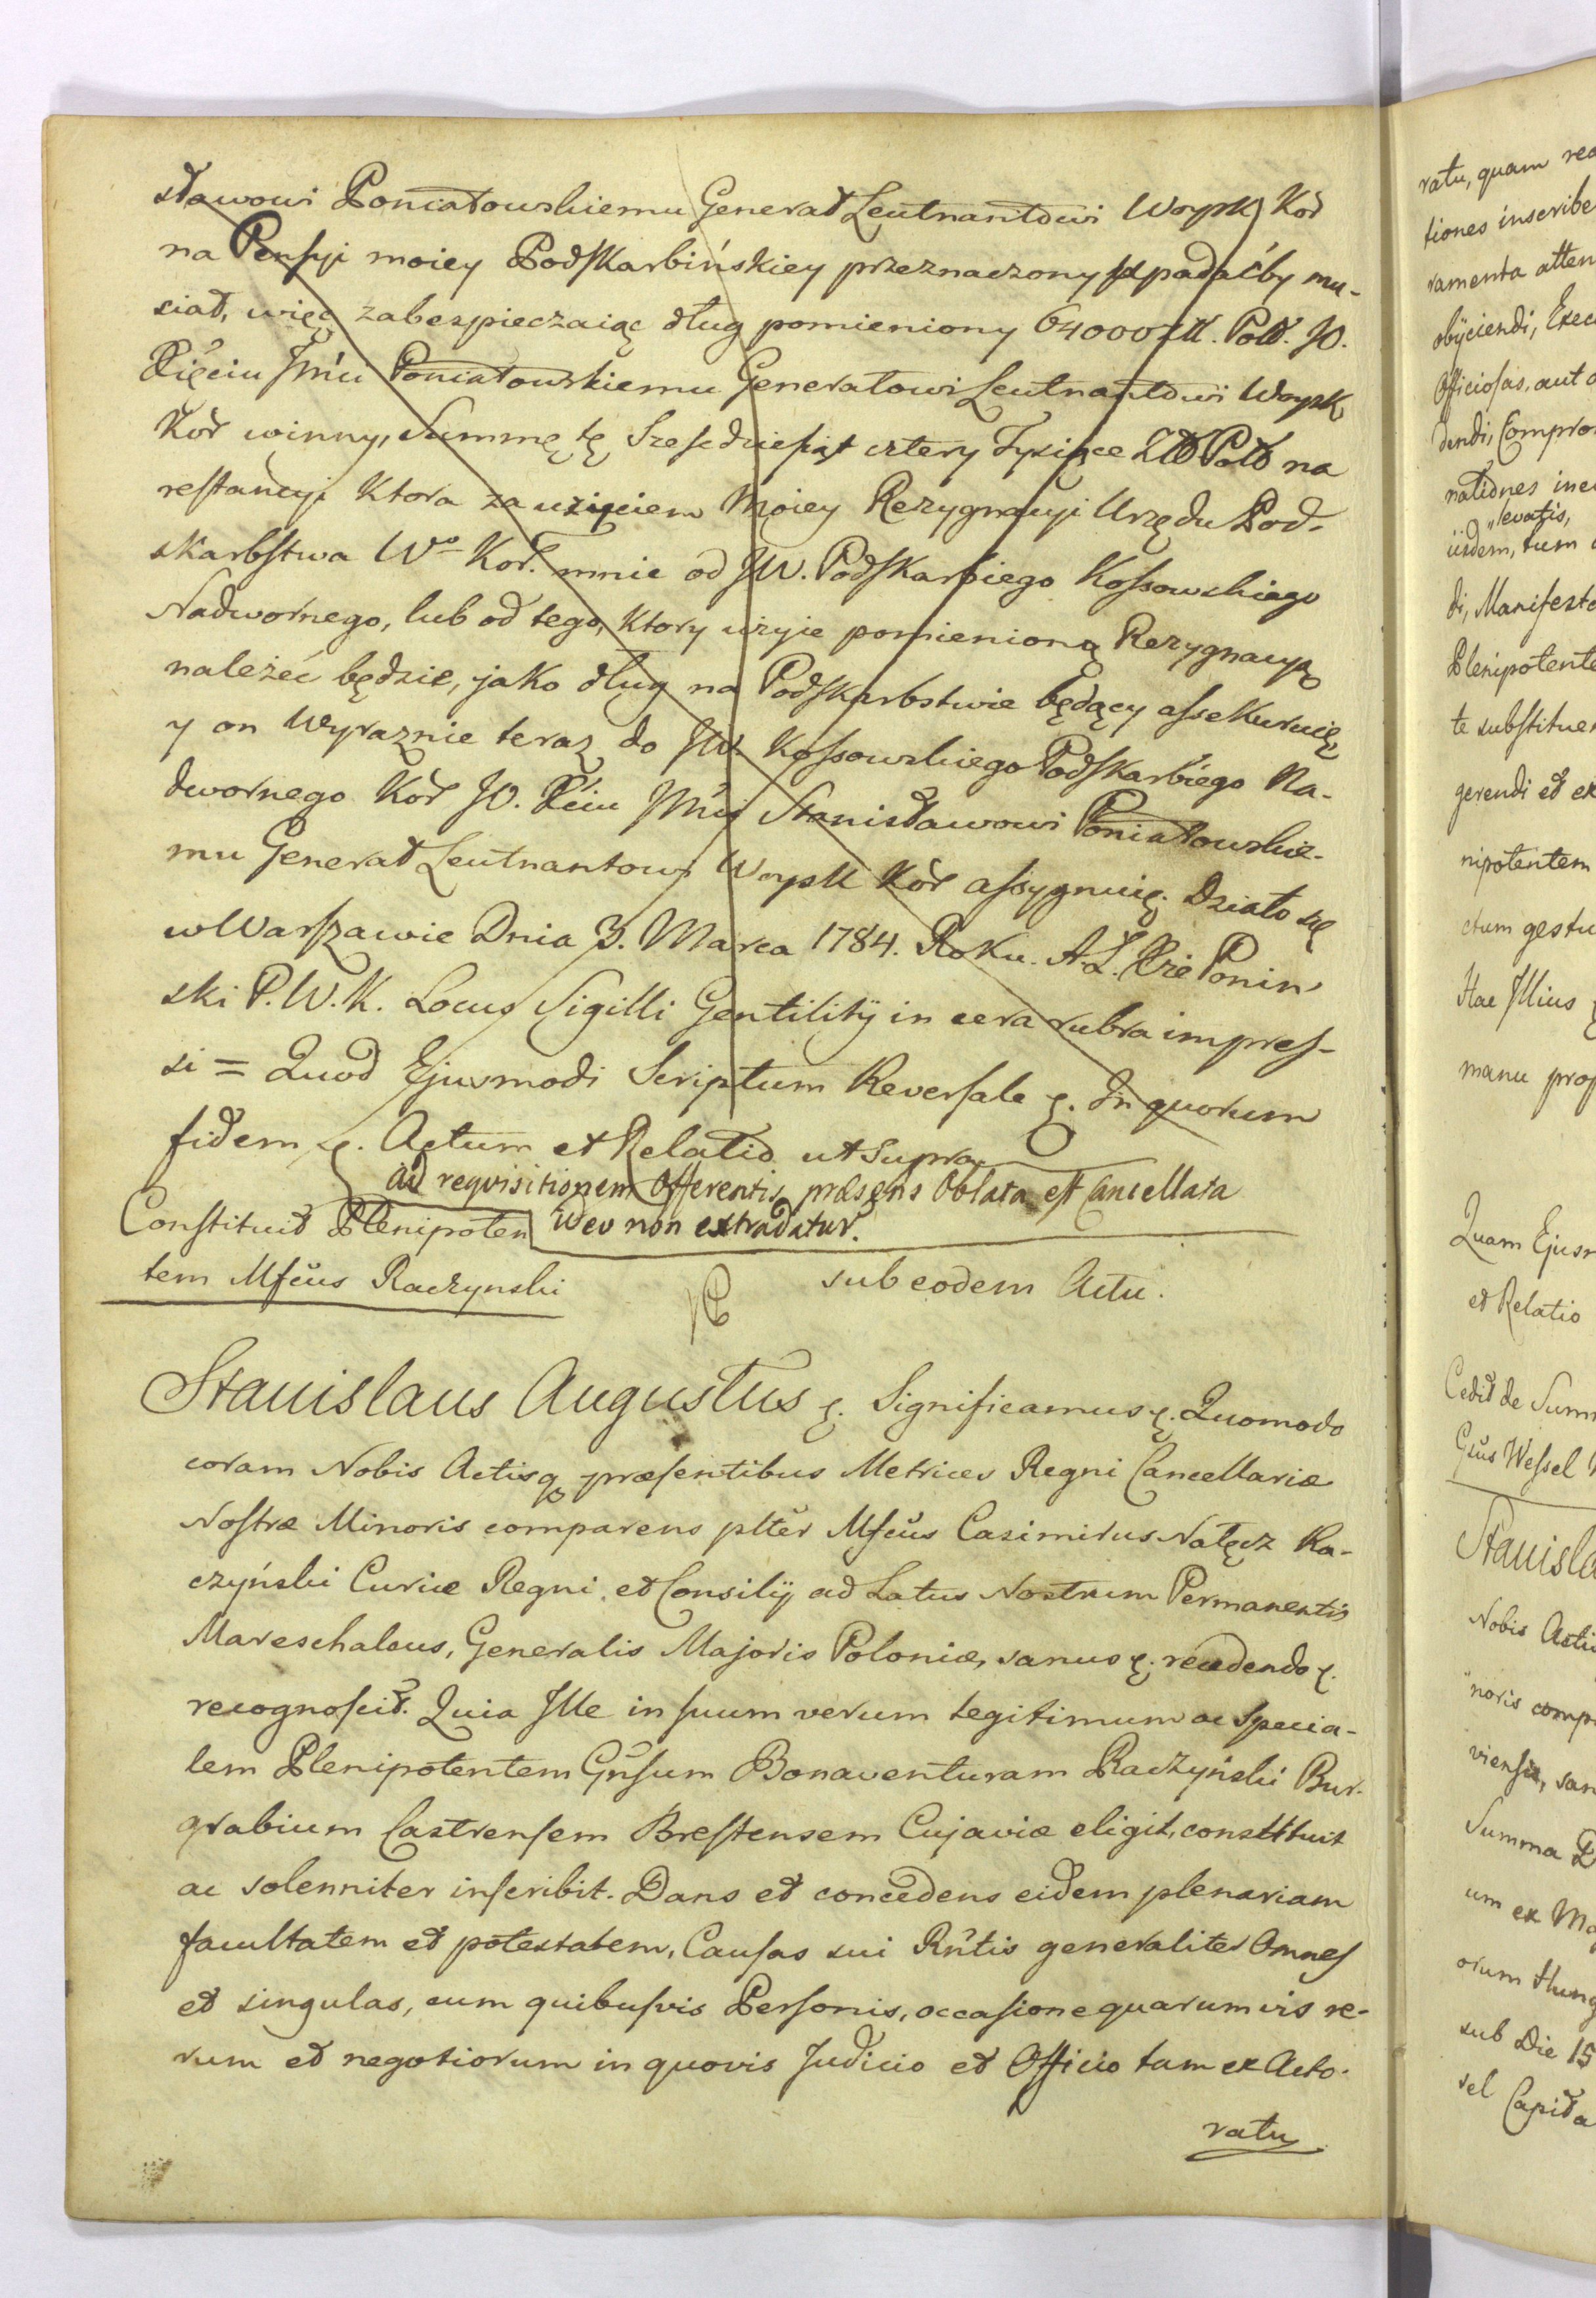 sławowi Poniatowskiemu Generał Leutnantowi Woysk Kor
na Pensyi moiey Podskarbińskiey przeznaczony spadaćby mu-
siał, więc zabespieczaiąc dług pomieniony 64000 Zł. Pol. JO.
Xięciu Jmći Poniatowskiemu Generałowi Leutnantowi Woysk
Kor winny, Summę tę Sześcdziesiąt cztery Tysiące Zł Pol na
restancyi Ktora za użyciem Moiey Rezygnacyi Urzędu Pod-
skarbstwa Wo Kor. mnie od JW. Podskarbiego Kossowskiego
Nadwornego, lub od tego, Ktory użyie pomienioną Rezygnacyą
należeć będzie, jako dług na Podskarbstwie będący assekuruię
y on Wyraznie teraz do JW. Kossowskiego Podskarbiego Na-
dwornego Kor JO. Xciu Jmći Stanisławowi Poniatowskie-
mu Generał Leutnantowi Woysk Kor assygnuię. Działo się
w Warszawie Dnia 3. Marca 1784. Roku. A. Ł. Xże Ponin-
ski P. W. K. Locus Sigilli Gentilitij in cera rubra impres-
si = Quod Ejusmodi Scriptum Reversale &. In quorum
fidem &. Actum et Relatio ut supra.
ad reqvisitionem Offerentis præsens Oblata est Cancellata
ideo non extradatur.
Constituit Plenipoten
tem Mfcus Raczynski
sub eodem Actu.
Stanislaus Augustus &. Significamus &. Quomodo
coram Nobis Actisq præsentibus Metrices Regni Cancellariæ
Nostræ Minoris comparens plter Mfcus Casimirus Nałęcz Ra-
czyński Curiæ Regni et Consilij ad Latus Nostrum Permanentis
Mareschalcus, Generalis Majoris Poloniæ, sanus &. recedendo &.
recognoscit. Quia Ille in suum verum legitimum ac specia-
lem Plenipotentem Gnsum Bonaventuram Raczyński Bur-
grabium Castrensem Brestensem Cujaviæ eligit, constituit
ac solenniter inscribit. Dans et concedens eidem plenariam
facultatem et potestatem, Causas sui Rntis generaliter Omnes
et singulas, cum quibusvis Personis, occasione quarumvis re-
rum et negotiorum in quovis Judicio et Officio tam ex Acto-
ratu
ratu, quam rea
tiones inscribe
ramenta atten
obijciendi, Exec
Officiosas, aut
dendi, Compro
nationes
iisdem, tum
di, Manifesta
Plenipotente
te substituen
gerendi et ex
nipotentem
ctum gestu
Hac Illius
manu prop
Quam Ejusm
et Relatio
Cedit de Summ
Gnus Wessel
Stanisla
Nobis Actis
noris comp
viensis, san
Summa
um ex Ma
orum Hung
sub Die 15
sel Capita